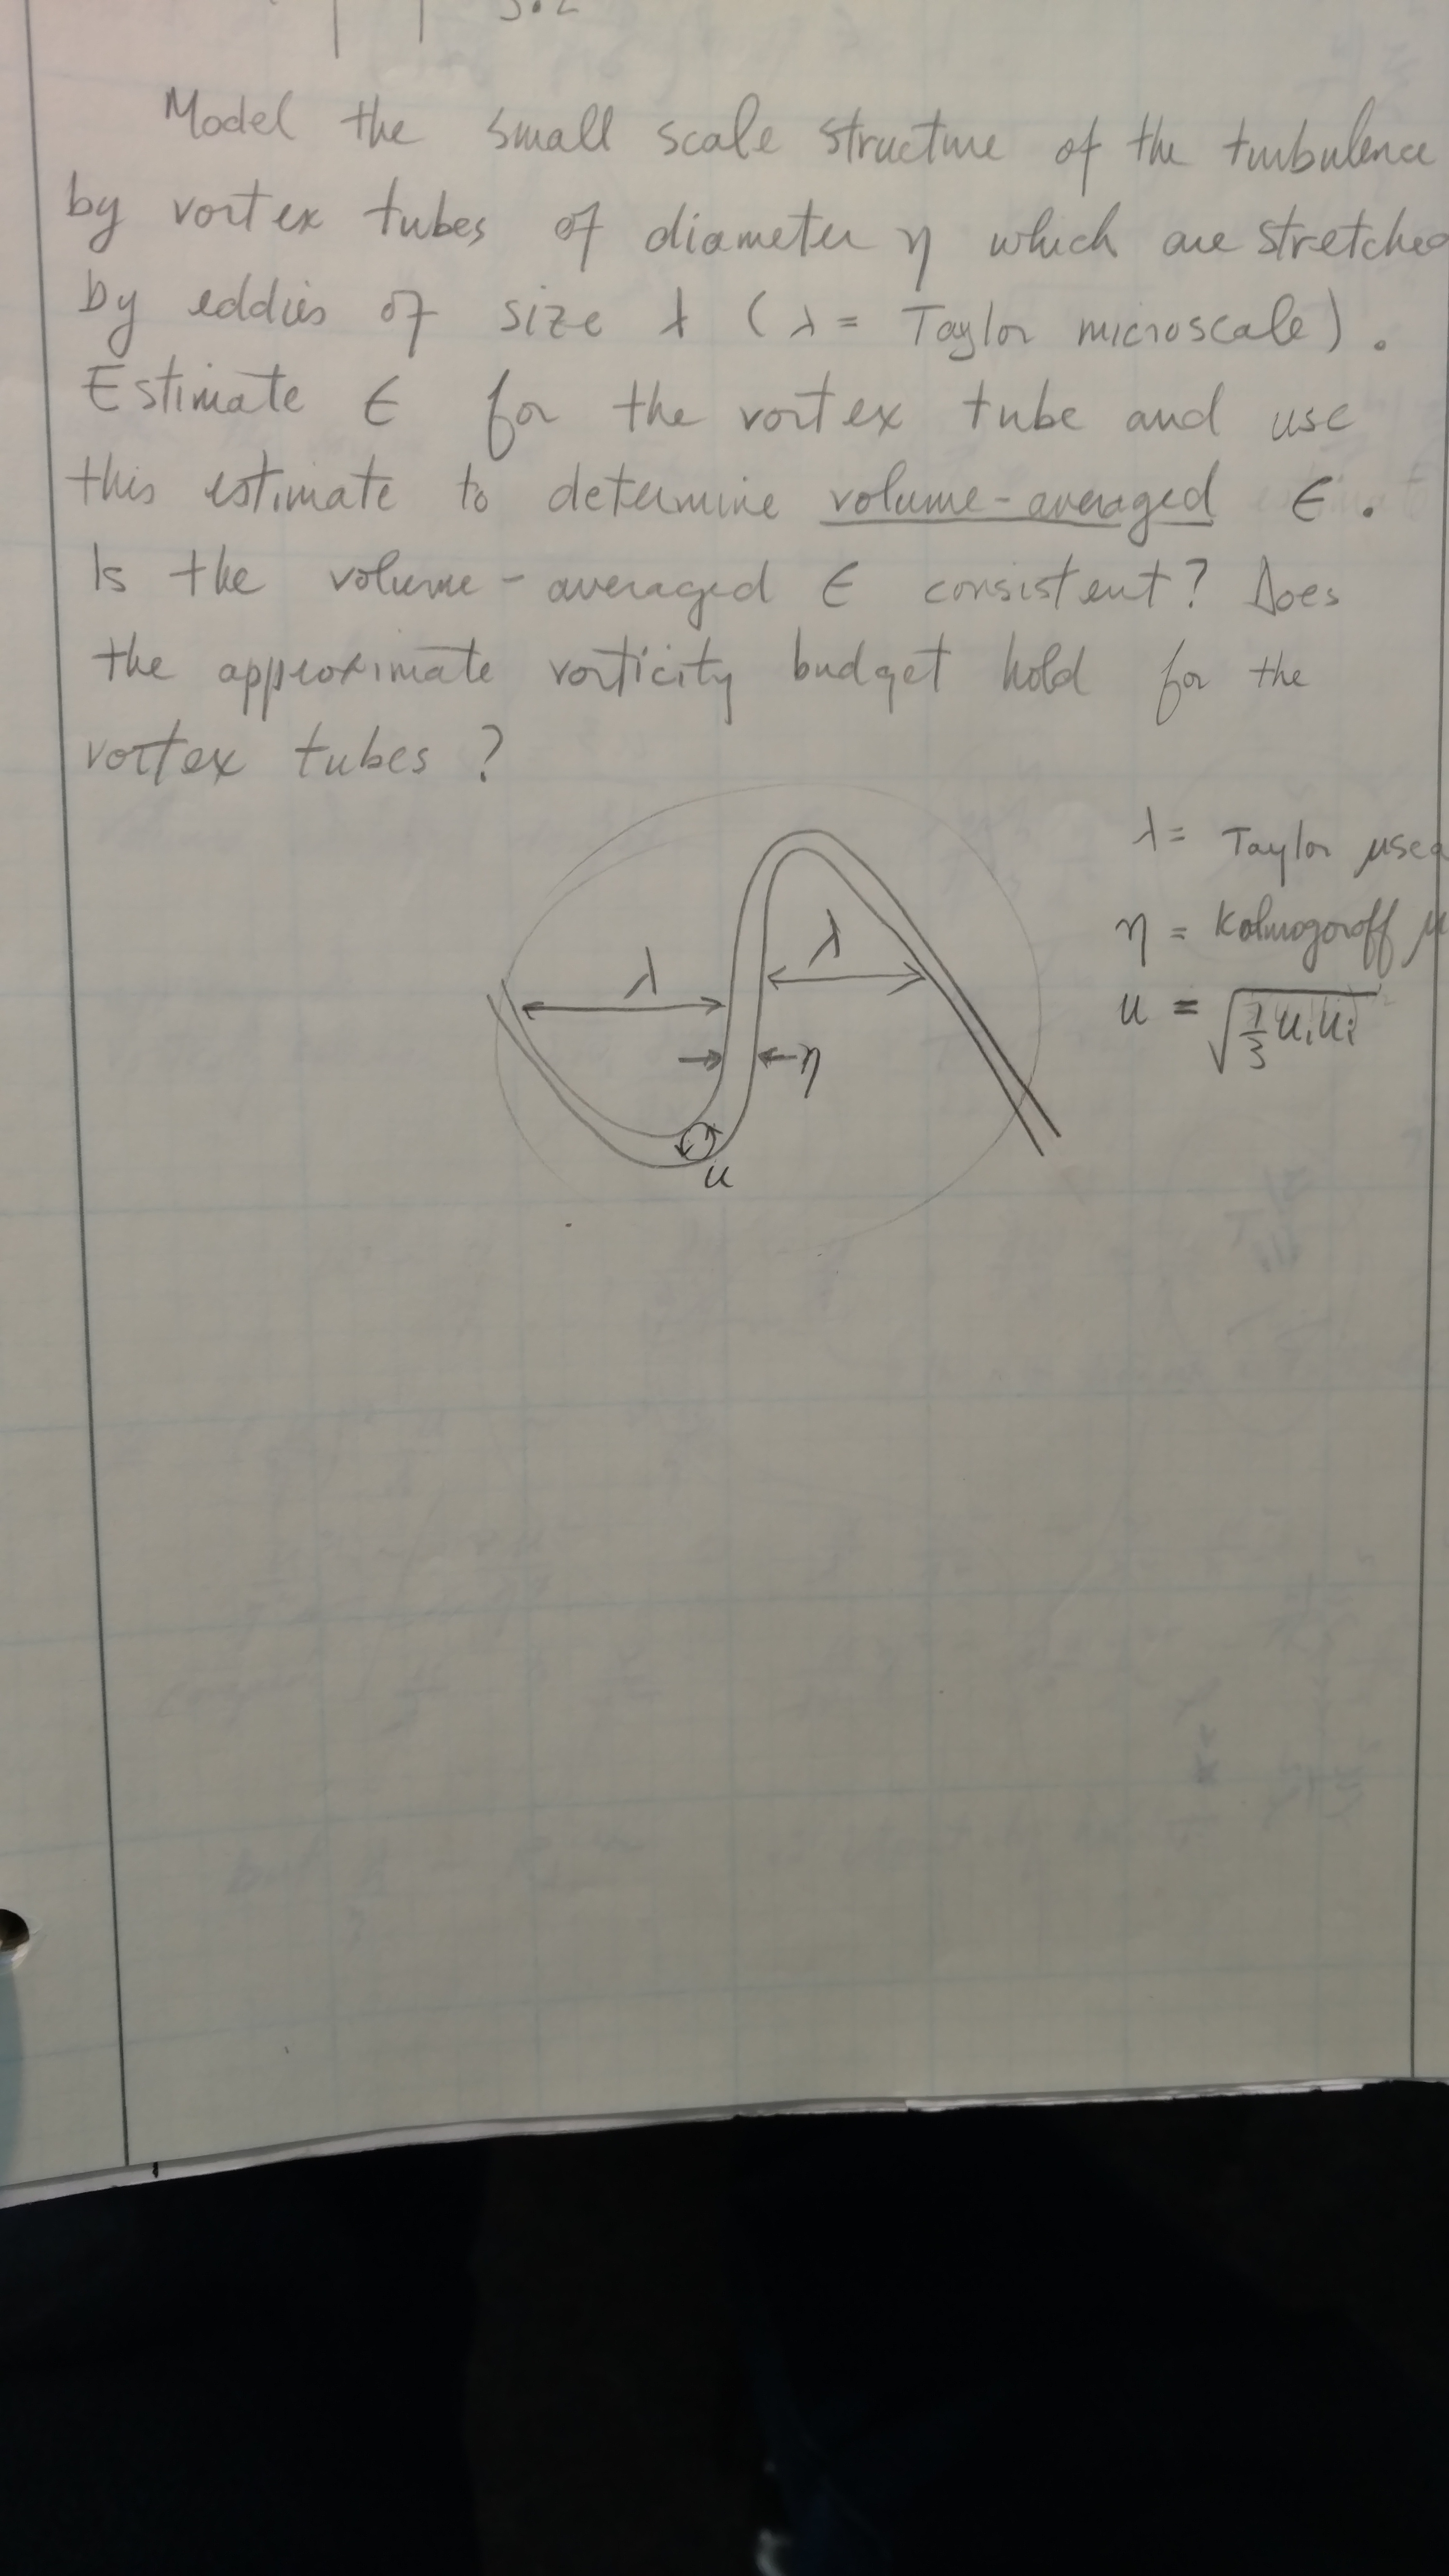 3.2
Model the small scale structure of the turbulence
by vortex tubes of diameter η which are stretched
by eddies of size λ (λ = Taylor microscale).
Estimate ϵ for the vortex tube and use
this estimate to determine volume-averaged ϵ.
Is the volume-averaged ϵ consistent? Does
the approximate vorticity budget hold for the
vortex tubes?
λ = Taylor μsca
η = Kolmogoroff μ
u = √(1/3 uᵢuᵢ)
λ
λ
η
u